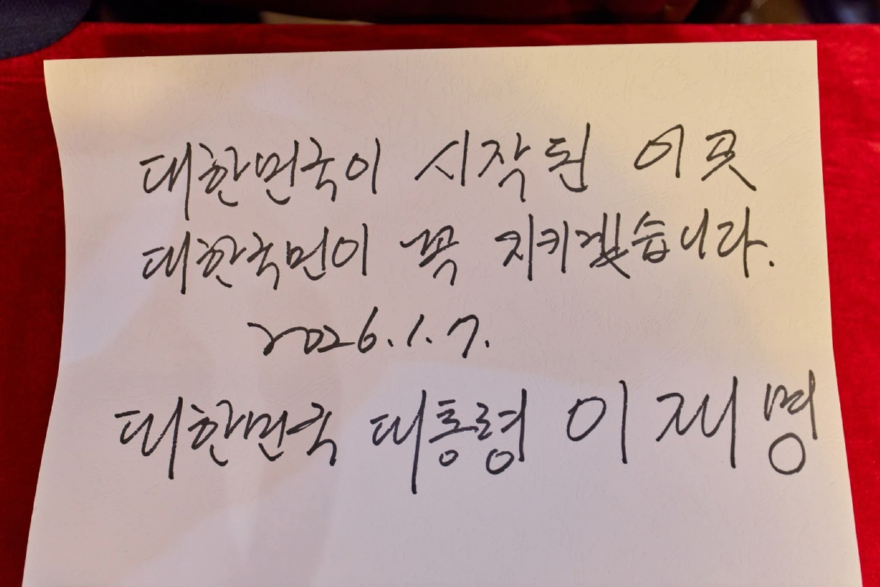 대한민국이 시작된 이곳
대한국민이 꼭 지키겠습니다.
2026.1.7.
대한민국 대통령 이재명